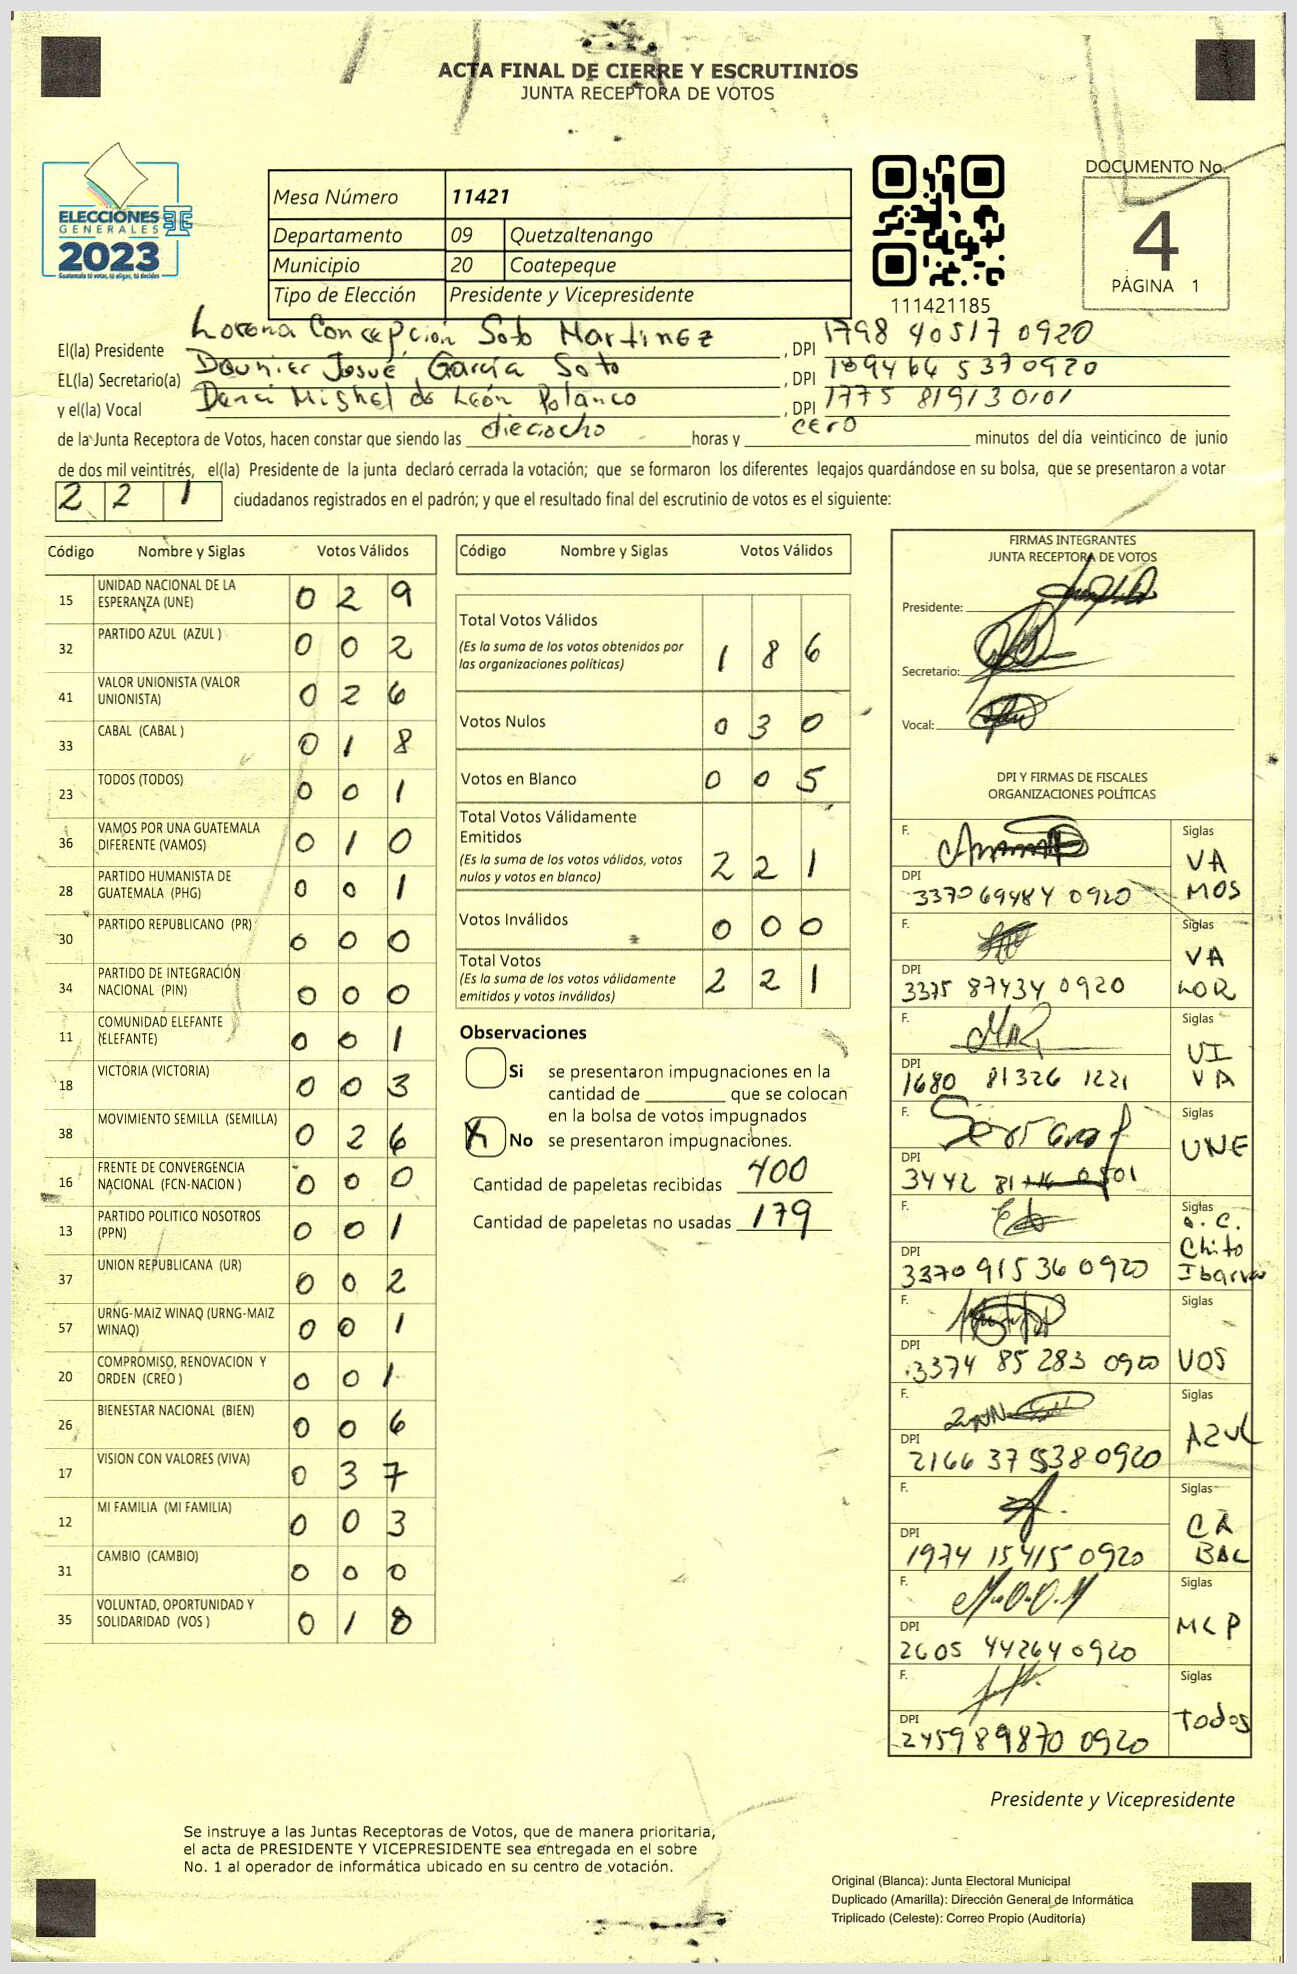 ACTA FINAL DE CIERRE Y ESCRUTINIOS
JUNTA RECEPTORA DE VOTOS
ELECCIONES
GENERALES
2023
Guatemala tú votas, tú eliges, tú decides
Mesa Número 11421
Departamento 09 Quetzaltenango
Municipio 20 Coatepeque
Tipo de Elección Presidente y Vicepresidente
111421185
DOCUMENTO No.
4
PÁGINA 1
El(la) Presidente Lorena Concepción Soto Martinez, DPI 1798 40517 0920
EL(la) Secretario(a) Josué García Soto, DPI 0920
y el(la) Vocal Mishel de León Polanco, DPI 1775 81913 0101
de la Junta Receptora de Votos, hacen constar que siendo las dieciocho horas y cero minutos del día veinticinco de junio
de dos mil veintitrés, el(la) Presidente de la junta declaró cerrada la votación; que se formaron los diferentes legajos guardándose en su bolsa, que se presentaron a votar
2 2 1 ciudadanos registrados en el padrón; y que el resultado final del escrutinio de votos es el siguiente:
Código Nombre y Siglas Votos Válidos
15 UNIDAD NACIONAL DE LA ESPERANZA (UNE) 0 2 9
32 PARTIDO AZUL (AZUL ) 0 0 2
41 VALOR UNIONISTA (VALOR UNIONISTA) 0 2 6
33 CABAL (CABAL ) 0 1 8
23 TODOS (TODOS) 0 0 1
36 VAMOS POR UNA GUATEMALA DIFERENTE (VAMOS) 0 1 0
28 PARTIDO HUMANISTA DE GUATEMALA (PHG) 0 0 1
30 PARTIDO REPUBLICANO (PR) 0 0 0
34 PARTIDO DE INTEGRACIÓN NACIONAL (PIN) 0 0 0
11 COMUNIDAD ELEFANTE (ELEFANTE) 0 0 1
18 VICTORIA (VICTORIA) 0 0 3
38 MOVIMIENTO SEMILLA (SEMILLA) 0 2 6
16 FRENTE DE CONVERGENCIA NACIONAL (FCN-NACION ) 0 0 0
13 PARTIDO POLITICO NOSOTROS (PPN) 0 0 1
37 UNION REPUBLICANA (UR) 0 0 2
57 URNG-MAIZ WINAQ (URNG-MAIZ WINAQ) 0 0 1
20 COMPROMISO, RENOVACION Y ORDEN (CREO ) 0 0 1
26 BIENESTAR NACIONAL (BIEN) 0 0 6
17 VISION CON VALORES (VIVA) 0 3 7
12 MI FAMILIA (MI FAMILIA) 0 0 3
31 CAMBIO (CAMBIO) 0 0 0
35 VOLUNTAD, OPORTUNIDAD Y SOLIDARIDAD (VOS ) 0 1 8
Código Nombre y Siglas Votos Válidos
Total Votos Válidos
(Es la suma de los votos obtenidos por las organizaciones políticas) 1 8 6
Votos Nulos 0 3 0
Votos en Blanco 0 0 5
Total Votos Válidamente Emitidos
(Es la suma de los votos válidos, votos nulos y votos en blanco) 2 2 1
Votos Inválidos 0 0 0
Total Votos
(Es la suma de los votos válidamente emitidos y votos inválidos) 2 2 1
Observaciones
Si se presentaron impugnaciones en la
cantidad de ________ que se colocan
en la bolsa de votos impugnados
X No se presentaron impugnaciones.
Cantidad de papeletas recibidas 400
Cantidad de papeletas no usadas 179
FIRMAS INTEGRANTES
JUNTA RECEPTORA DE VOTOS
Presidente:
Secretario:
Vocal:
DPI Y FIRMAS DE FISCALES
ORGANIZACIONES POLÍTICAS
F. Siglas VA MOS
DPI 3370 69484 0920
F. Siglas VA LOR
DPI 3375 87434 0920
F. Siglas VI VA
DPI 1680 81326 1221
F. Siglas UNE
DPI 3442 0501
F. Siglas Chito Ibarra
DPI 3370 91536 0920
F. Siglas VOS
DPI 3374 85 283 0920
F. Siglas AZUL
DPI 2166 37 538 0920
F. Siglas CA BAL
DPI 1974 15415 0920
F. Siglas MLP
DPI 2605 44264 0920
F. Siglas Todos
DPI 2459 89870 0920
Presidente y Vicepresidente
Se instruye a las Juntas Receptoras de Votos, que de manera prioritaria,
el acta de PRESIDENTE Y VICEPRESIDENTE sea entregada en el sobre
No. 1 al operador de informática ubicado en su centro de votación.
Original (Blanca): Junta Electoral Municipal
Duplicado (Amarilla): Dirección General de Informática
Triplicado (Celeste): Correo Propio (Auditoría)